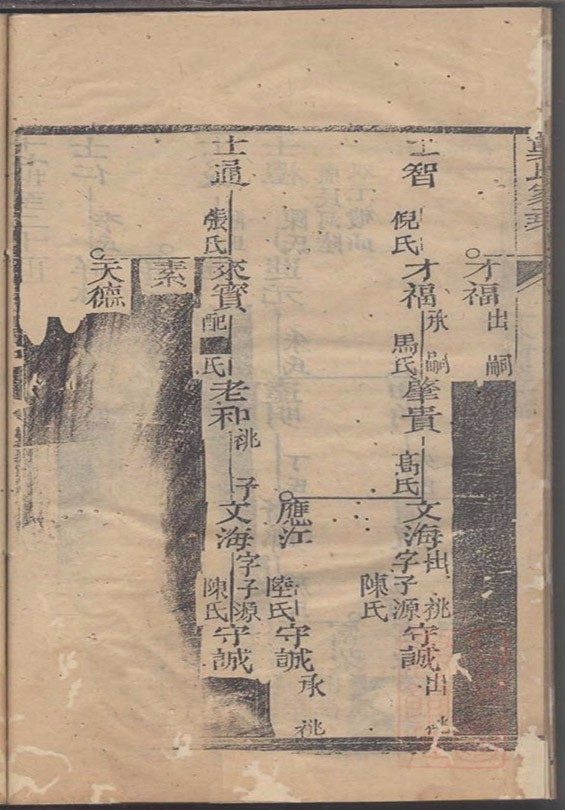 才福出嗣
士智倪氏才福承嗣馬氏肇貴高氏文海出祧字子源陳氏守誠出祧
應江陸氏守誠承祧
士通張氏來賓配氏老和祧子文海字子源陳氏守誠
素
天德